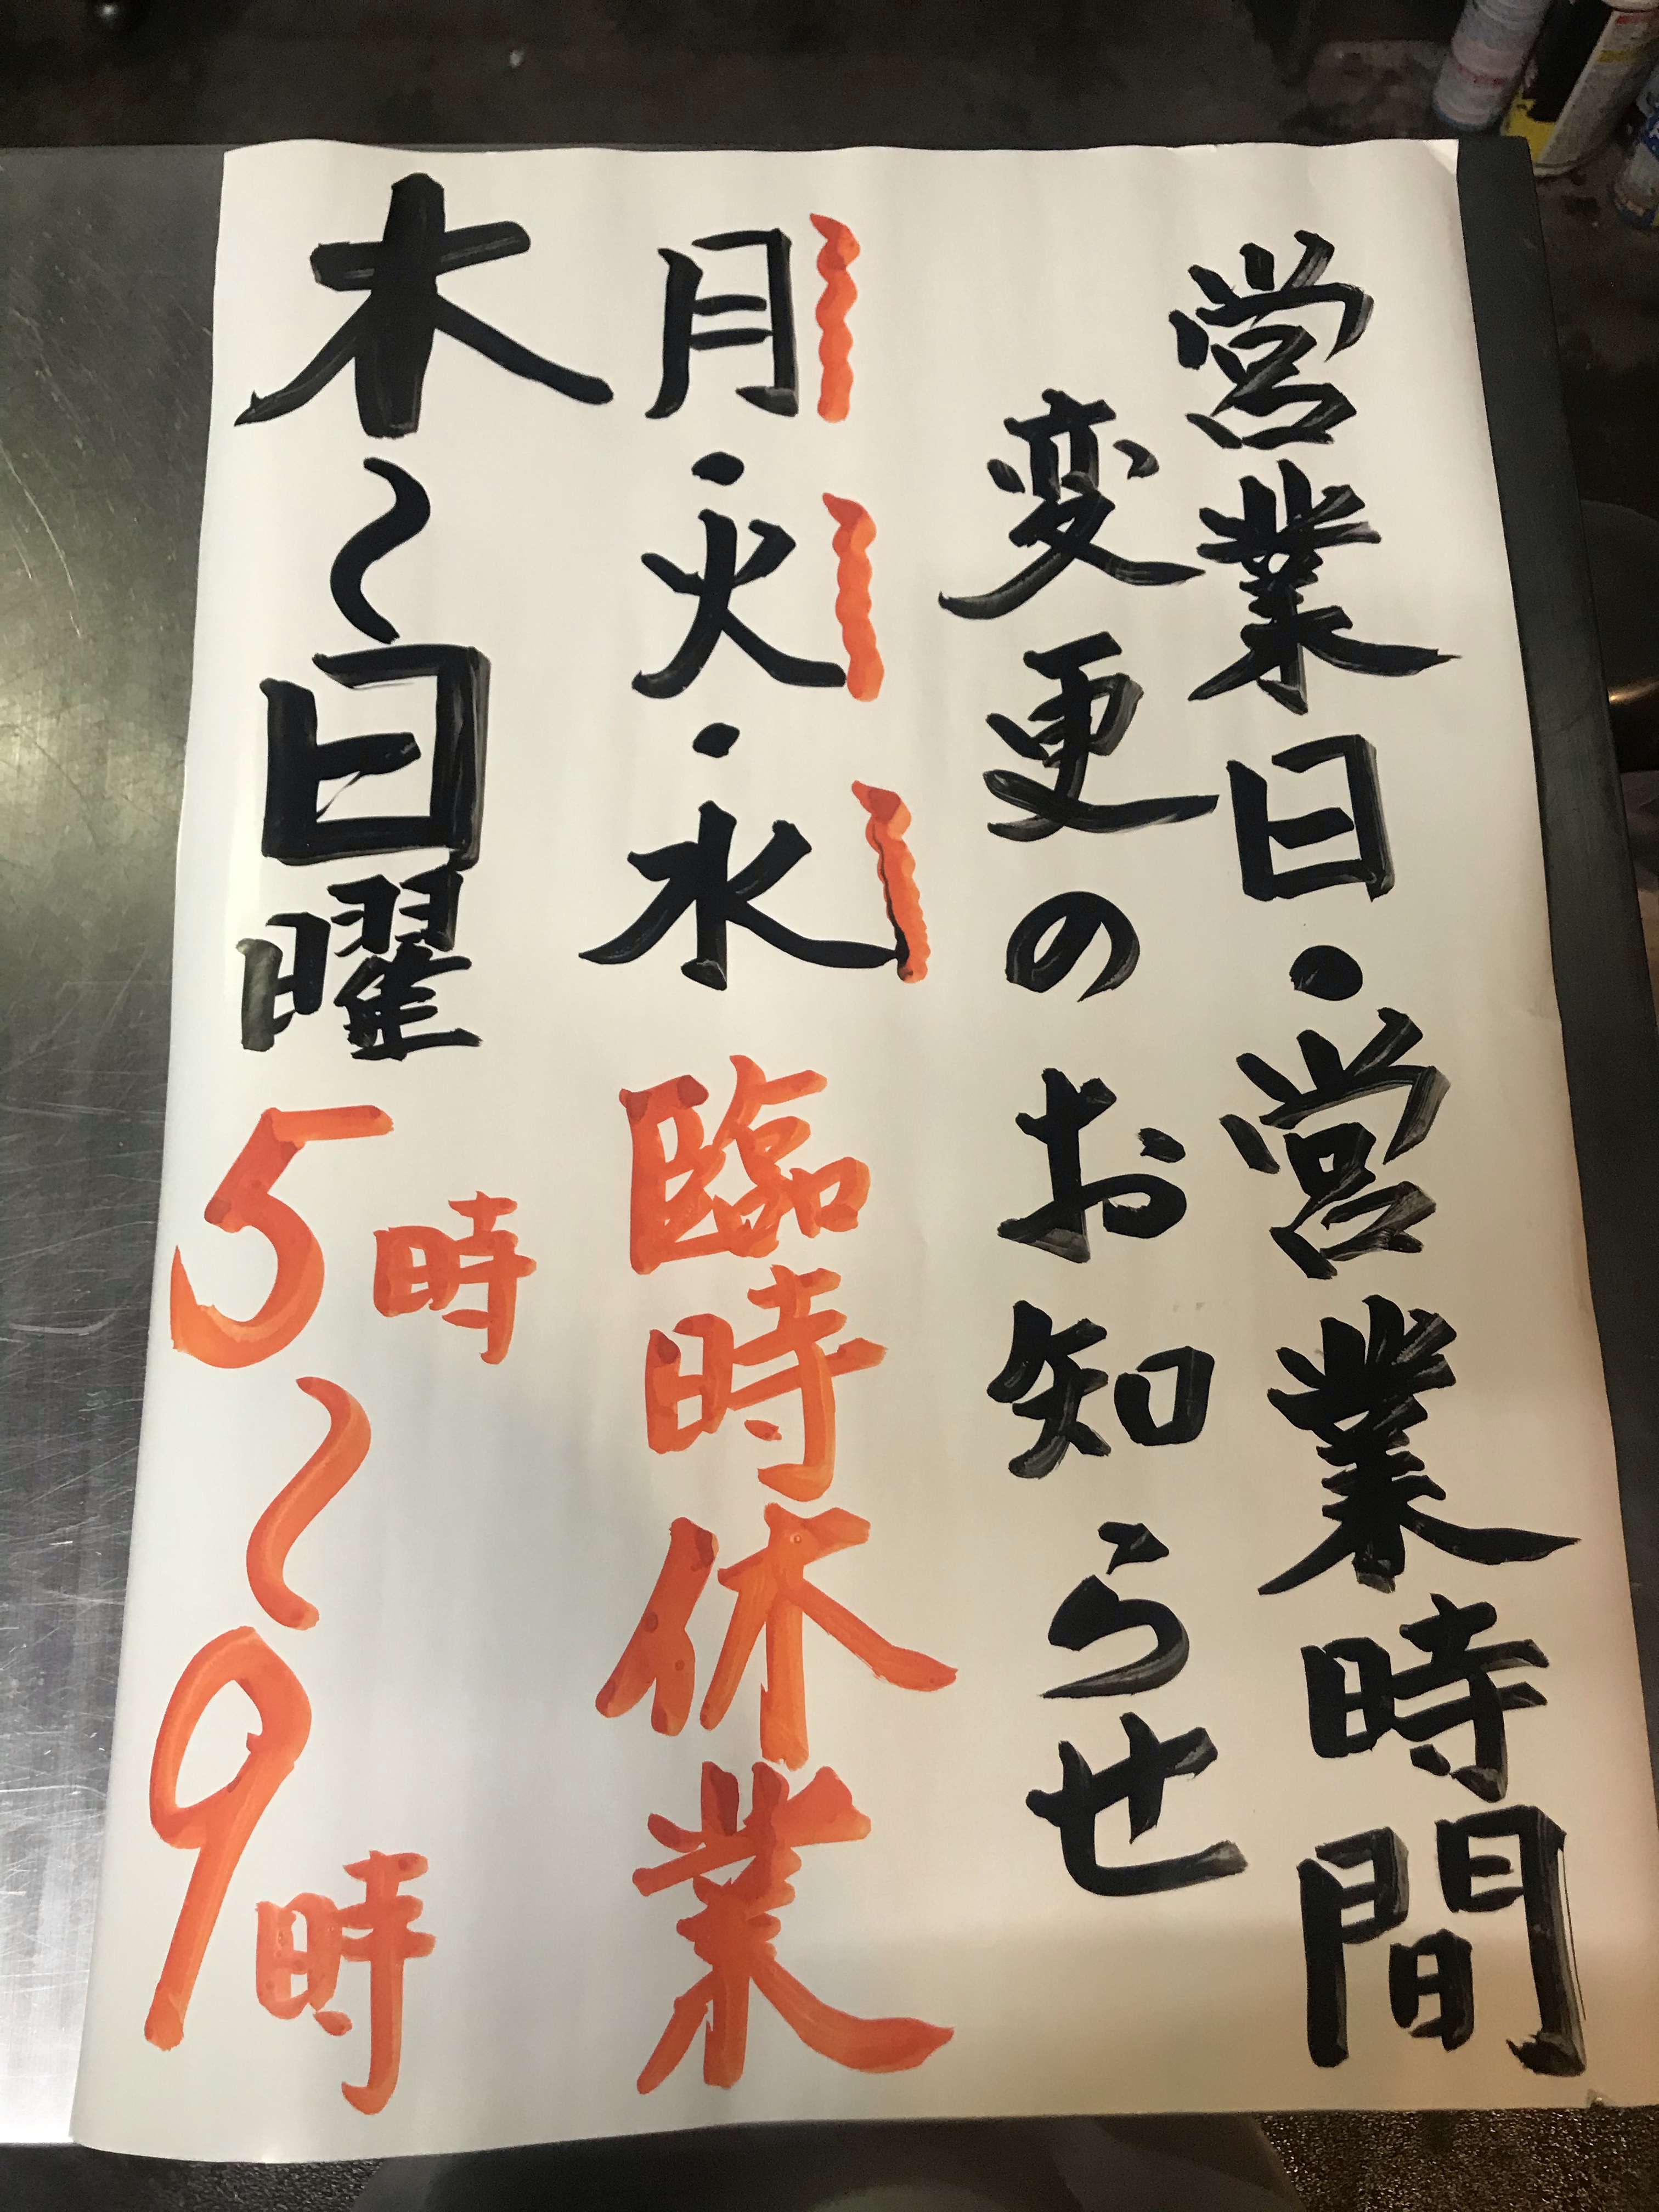 営業日・営業時間
変更のお知らせ
月・火・水 臨時休業
木〜日曜 5時〜9時